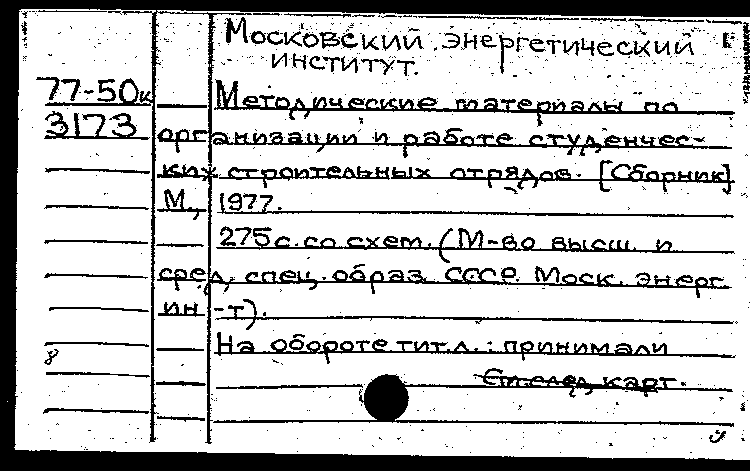 Московский энергетический
институт.
77-50к
3173
Методические материалы по
организации и работе студенчес-
ких строительных отрядов. [Сборник]
М., 1977.
275с. со схем. (М-во высш. и
сред. спец. образ. СССР. Моск. энерг.
ин-т).
На обороте тит.л.: принимали
См.след. карт.
8